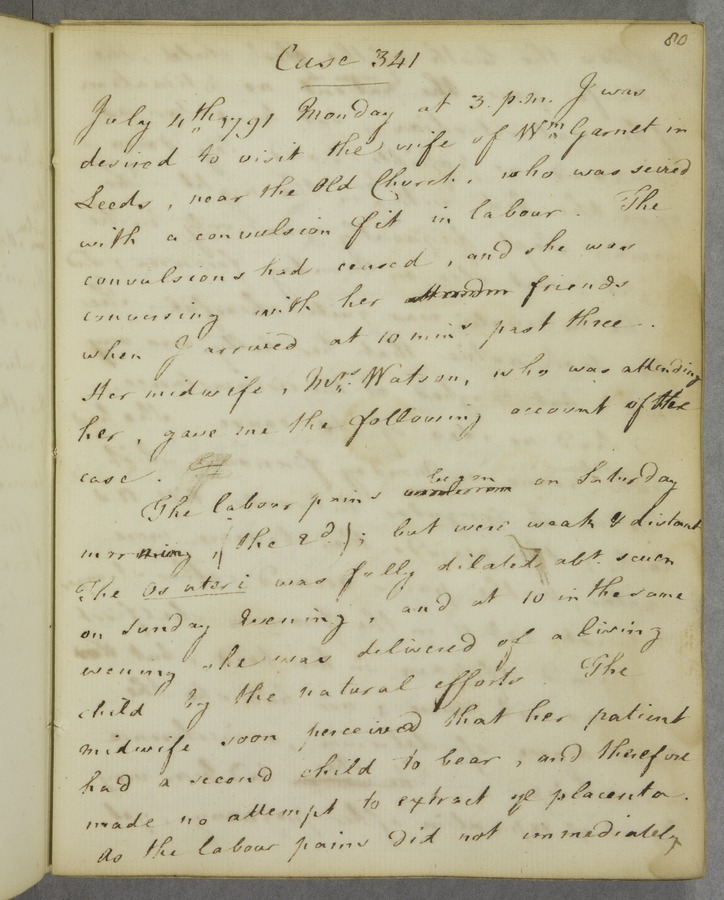 80
Case 341
July 4th 1791 Monday at 3. p.m. I was
desired to visit the wife of Wm Garnet in
Leeds, near the Old Church, who was seized
with a convulsion fit in labour. The
convulsions had ceased, and she was
conversing with her friends
when I arrived at 10 mins past three.
Her midwife, Mrs. Watson, who was attending
her, gave me the following account of the
case.
The labour pains began on Saturday
morning, (the 2d); but were weak & distant
The Os uteri was fully dilated abt. seven
on Sunday Evening, and at 10 in the same
evening she was delivered of a living
child by the natural efforts. The
midwife soon perceived that her patient
had a second child to bear, and therefore
made no attempt to extract ye placenta.
As the labour pains did not immediately